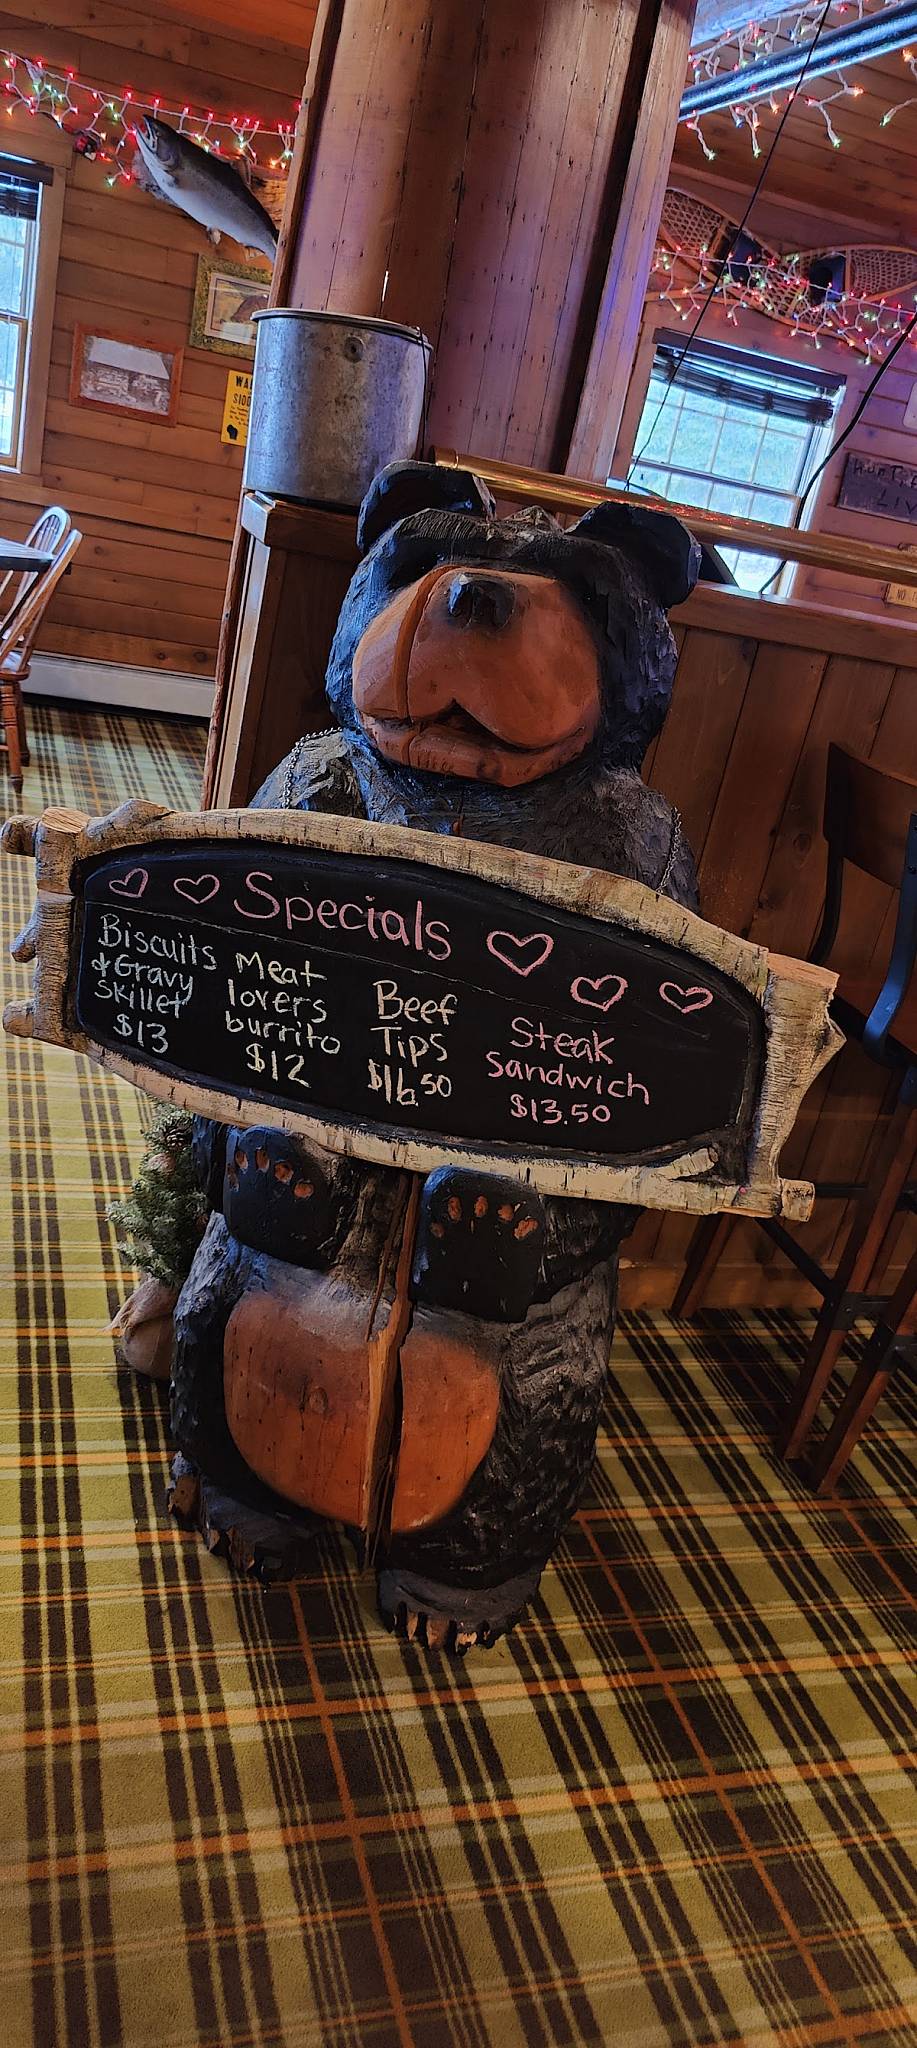 Specials
Biscuits
& Gravy
Skillet
$13
Meat
lovers
burrito
$12
Beef
Tips
$16.50
Steak
Sandwich
$13.50